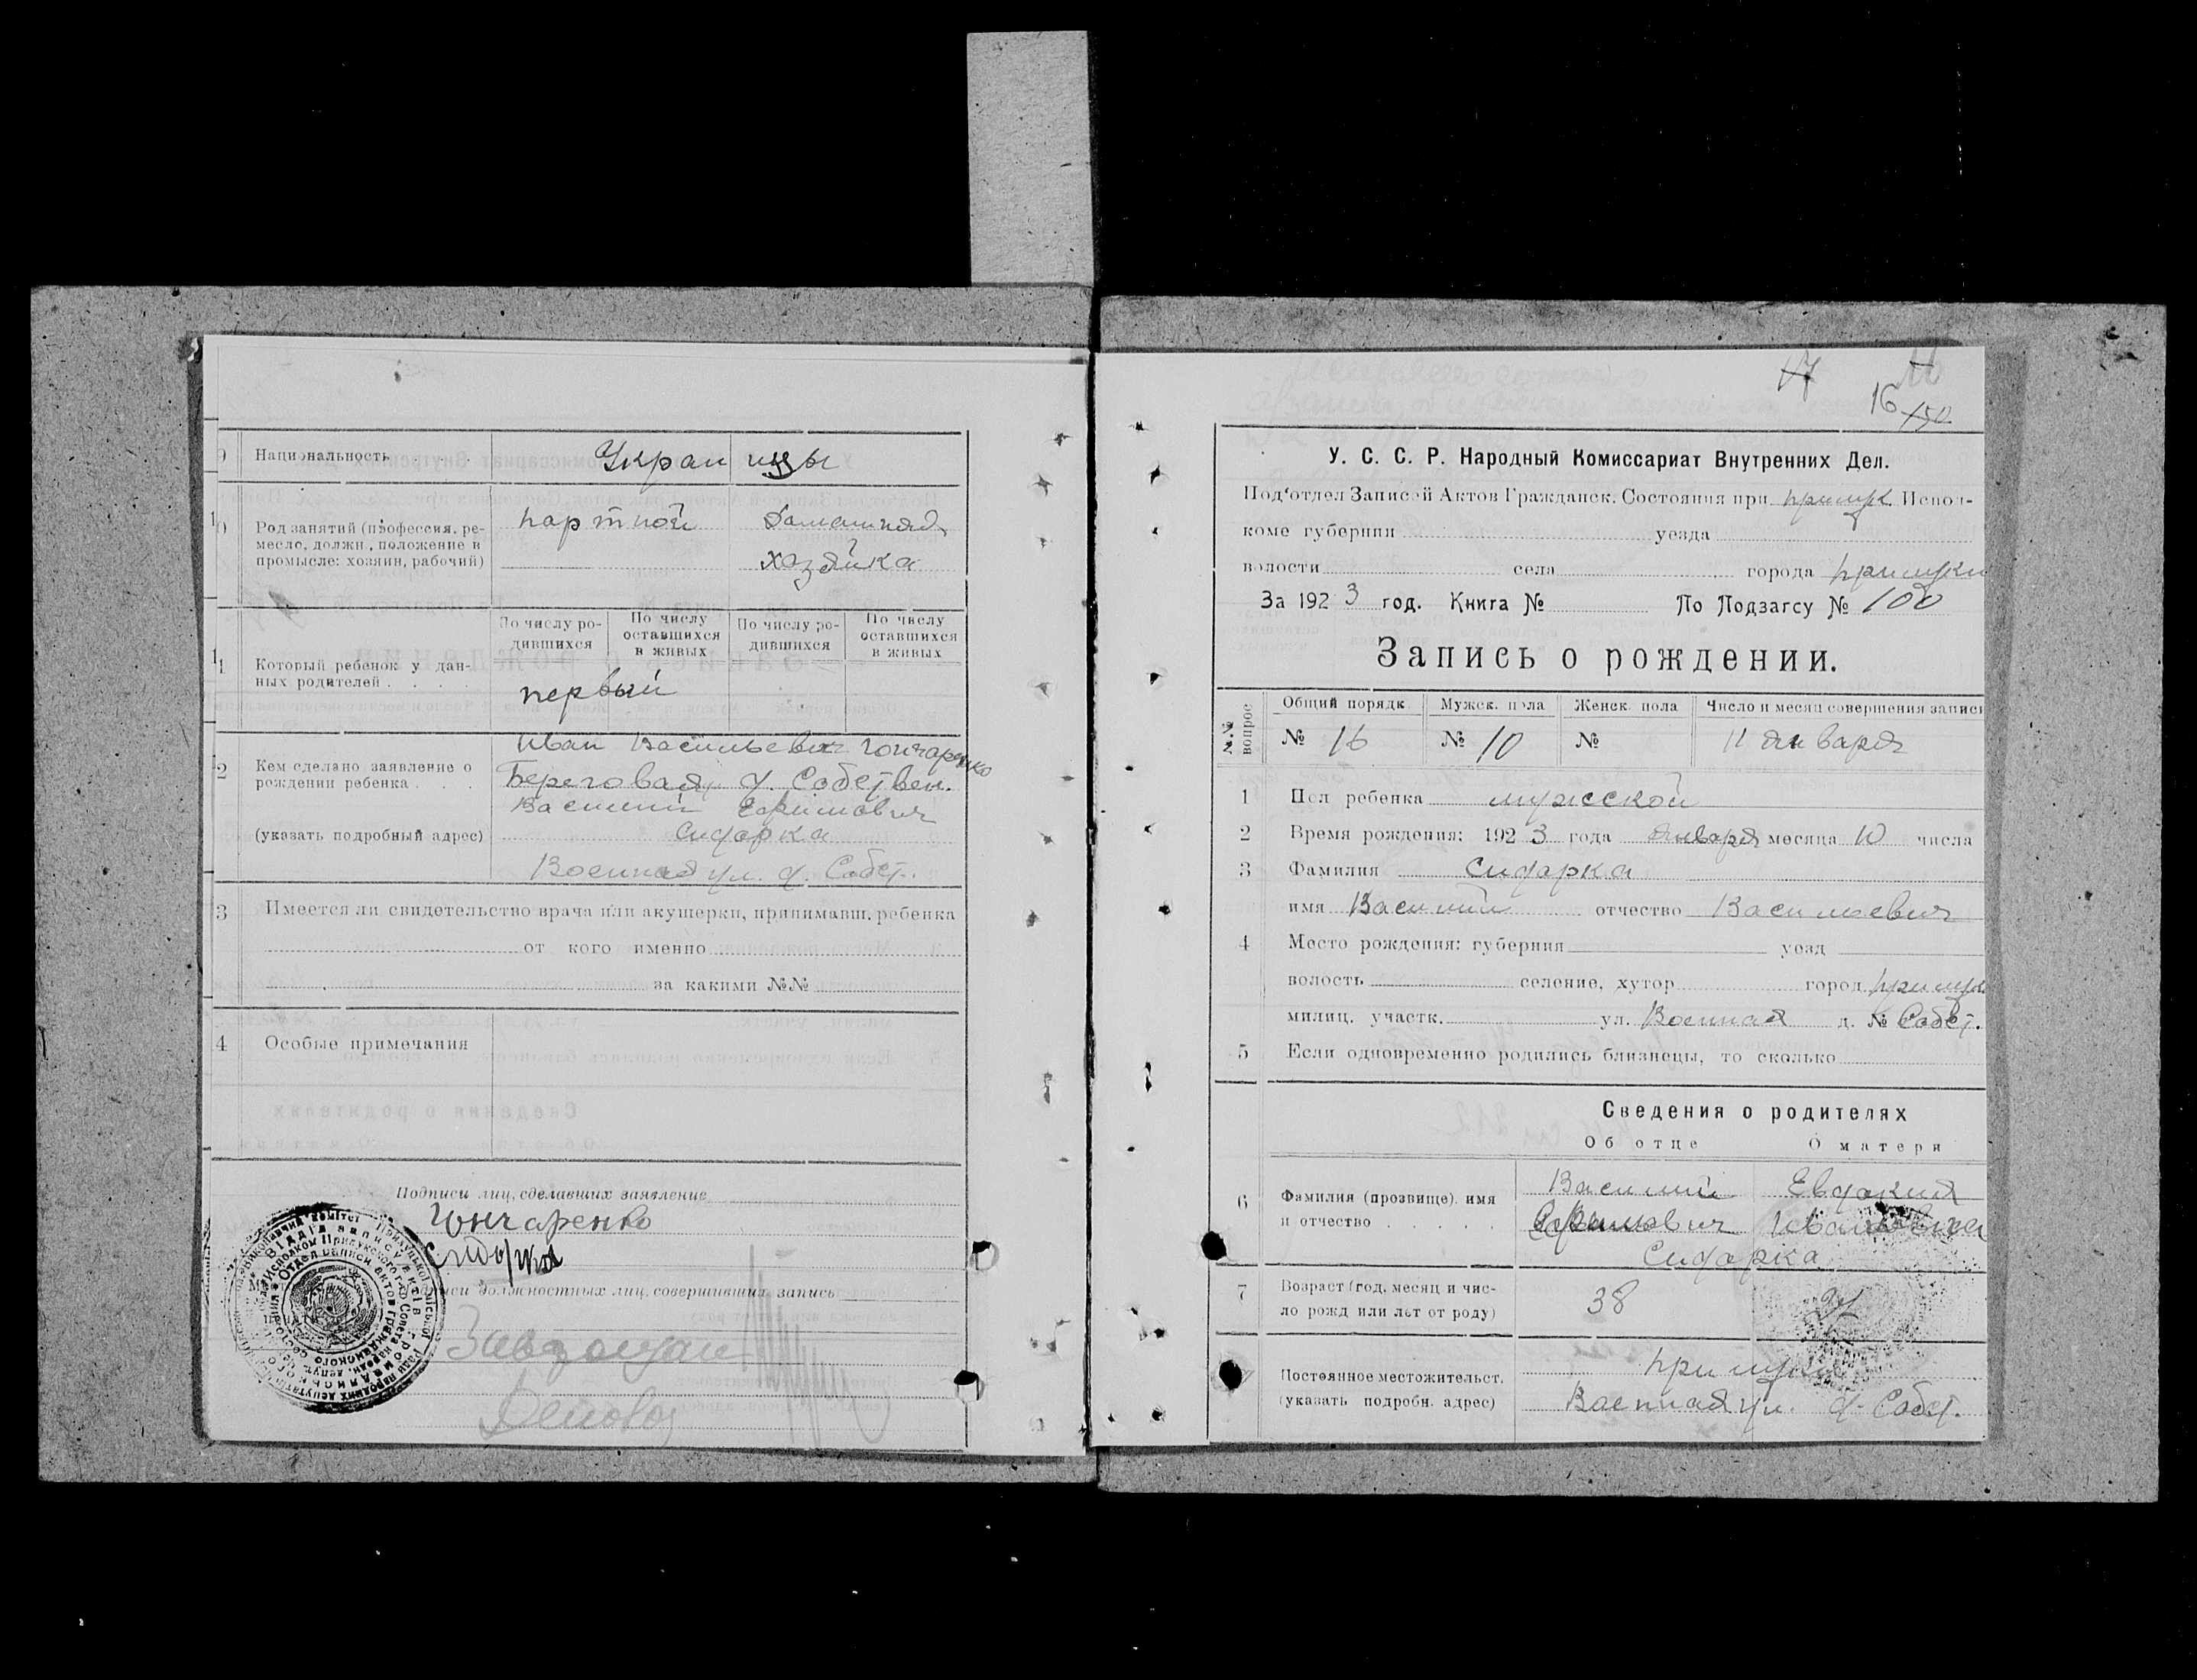 9 Национальность . . . . Украинцы
10 Род занятий (профессия, ре-
месло, должн., положение в
промысле: хозяин, рабочий)
портной
Домашняя
хозяйка
По числу ро-
дившихся
По числу
оставшихся
в живых
По числу ро-
дившихся
По числу
оставшихся
в живых
11 Который ребенок у дан-
ных родителей . . . .
первый
2 Кем сделано заявление о
рождении ребенка . . .
(указать подробный адрес)
Иван Васильевич Гончаренко
Береговая д. Собствен.
Василий Ефимович
Сидорка
Военная ул. д. Собст.
3 Имеется ли свидетельство врача или акушерки, принимавш. ребенка
от кого именно
за какими №№
4 Особые примечания
Подписи лиц, сделавших заявление
Гончаренко
Сидорка
должностных лиц, совершивших запись
17
16 150
У. С. С. Р. Народный Комиссариат Внутренних Дел.
Под'отдел Записей Актов Гражданск. Состояния при Прилук. Испол-
коме губернии уезда
волости села города Прилуки
За 1923 год. Книга № По Подзагсу № 100
Запись о рождении.
№№ вопрос
Общий порядк. Мужск. пола Женск. пола Число и месяц совершения записи
№ 16 № 10 № 11 января
1 Пол ребенка мужской
2 Время рождения: 1923 года января месяца 10 числа
3 Фамилия Сидорка
имя Василий отчество Васильевич
4 Место рождения: губерния уезд
волость селение, хутор город Прилуки
милиц. участк. ул. Военная д. № Собст.
5 Если одновременно родились близнецы, то сколько
Сведения о родителях
Об отце О матери
6 Фамилия (прозвище) имя
и отчество . . . . .
Василий Евдокия
Ефимович Ивановна
Сидорка
7 Возраст (год, месяц и чис-
ло рожд или лет от роду)
38
Постоянное местожительст.
(указать подробн. адрес)
Прилуки
Военная ул. д. Собст.